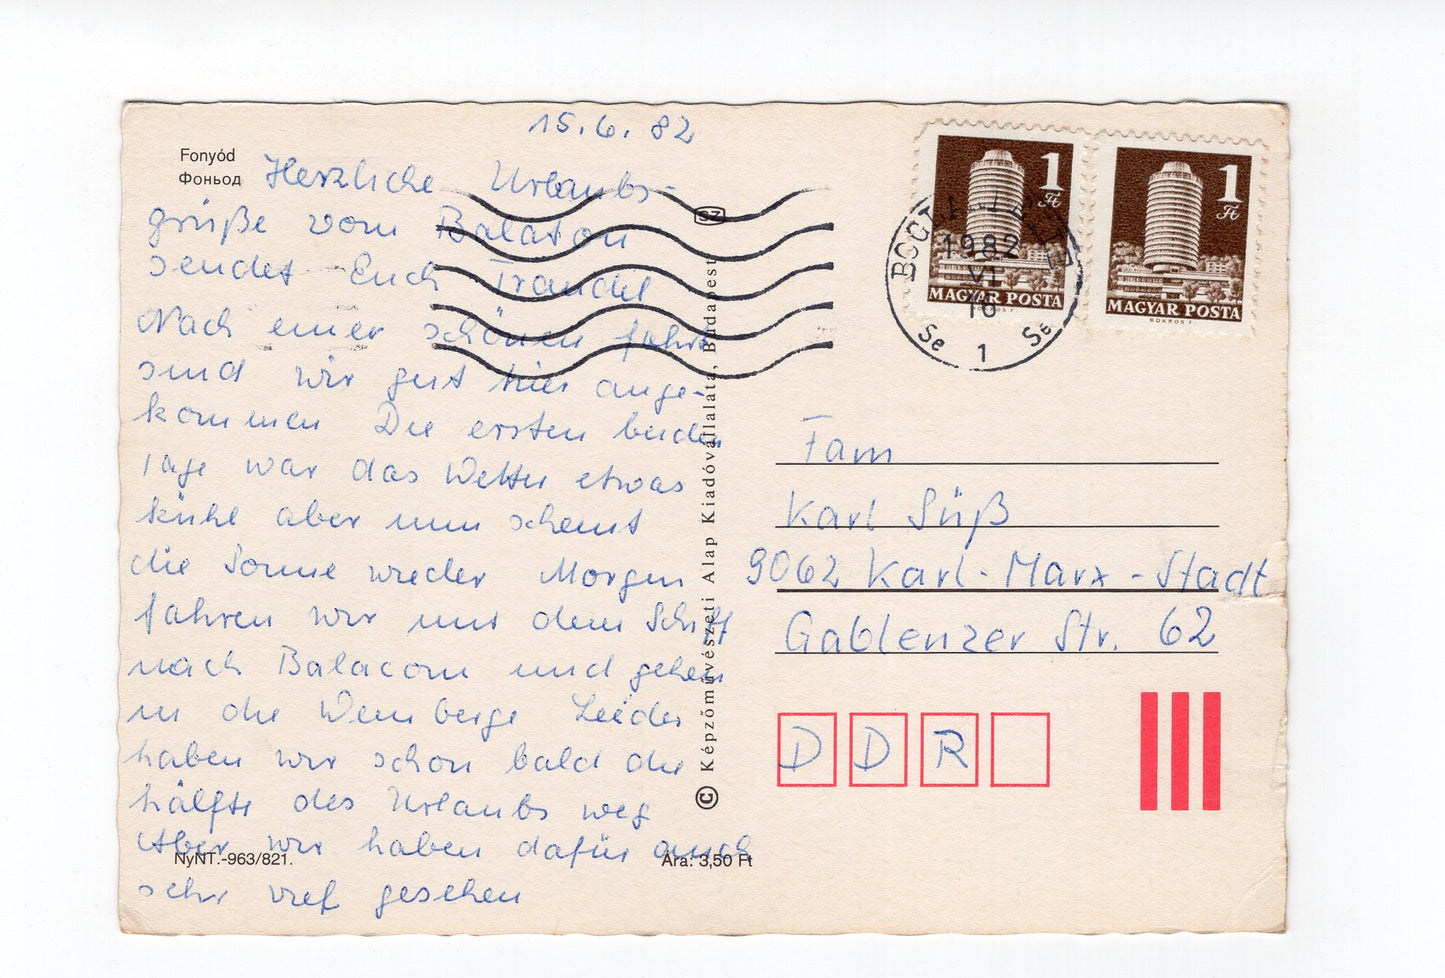 15.6.82
Fonyód
Фоньод
Herzliche Urlaubs-
grüße vom Balaton
sendet Euch Traudel
Nach einer schönen Fahrt
sind wir gut hier ange-
kommen Die ersten beiden
Tage war das Wetter etwas
kühl aber nun scheint
die Sonne wieder Morgen
fahren wir mit dem Schiff
nach Balacom und gehen
in die Weinberge Leider
haben wir schon bald die
hälfte des Urlaubs weg
Aber wir haben dafür auch
sehr viel gesehen
NyNT.-963/821.
Ára: 3,50 Ft
© Képzőművészeti Alap Kiadóvállalata, Budapest
SZ
1 Ft
MAGYAR POSTA
1 Ft
MAGYAR POSTA
NOKROS F.
1982
VI
16
Se 1 Se
Fam
Karl Süß
9062 Karl-Marx-Stadt
Gablenzer Str. 62
D D R